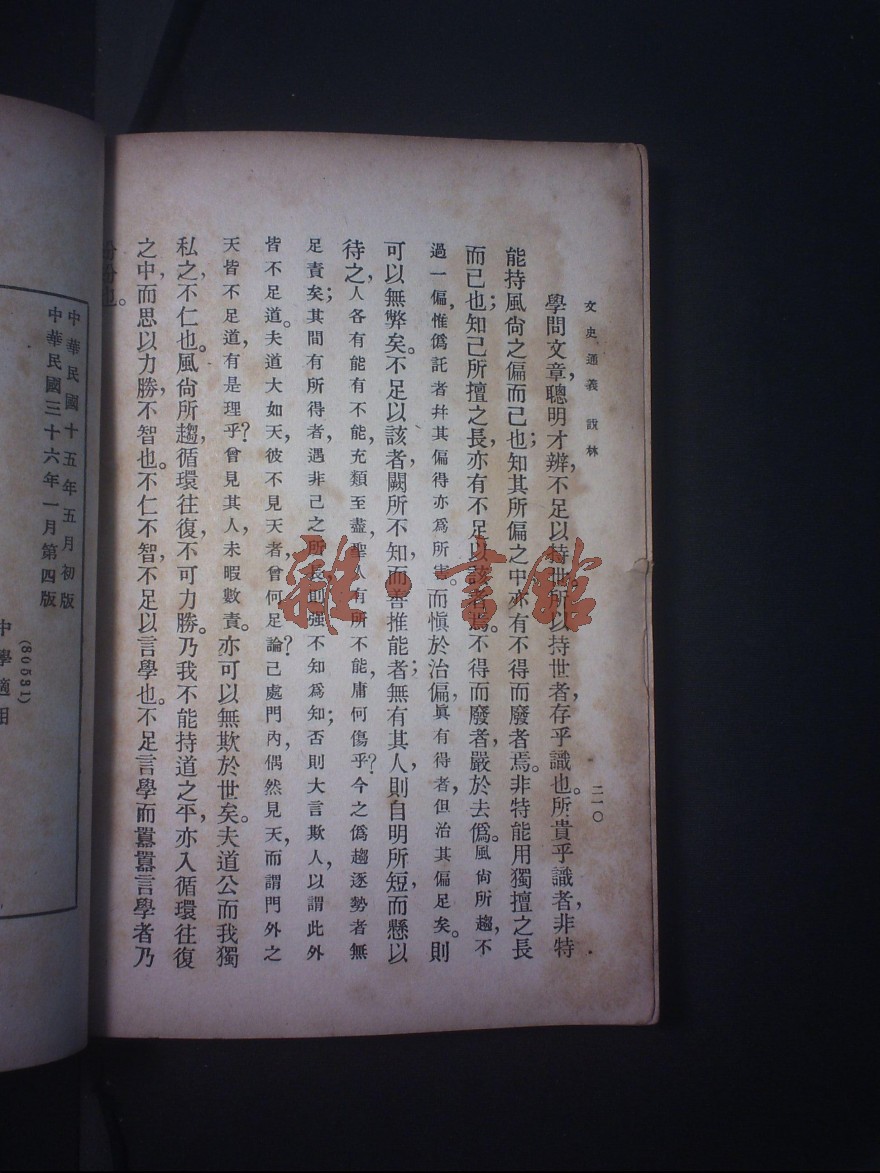 文史通義 說林
二一〇
學問文章，聰明才辨，不足以持世。所以持世者，存乎識也。所貴乎識者，非特
能持風尚之偏而已也；知其所偏之中，亦有不得而廢者焉。非特能用獨擅之長
而已也；知己所擅之長，亦有不足以該者焉。不得而廢者，嚴於去僞。風尚所趨，不
過一偏，惟僞託者幷其偏得亦爲所害。而愼於治偏，眞有得者，但治其偏足矣。則
可以無弊矣。不足以該者，闕所不知，而善推能者；無有其人，則自明所短，而懸以
待之，人各有能有不能，充類至盡，聖人有所不能，庸何傷乎？今之僞趨逐勢者，無
足責矣；其間有所得者，遇非己之所長，則强不知爲知；否則大言欺人，以謂此外
皆不足道。夫道大如天，彼不見天者，曾何足論？己處門內，偶然見天，而謂門外之
天皆不足道，有是理乎？曾見其人，未暇數責。亦可以無欺於世矣。夫道公而我獨
私之，不仁也。風尚所趨，循環往復，不可力勝。乃我不能持道之平，亦入循環往復
之中，而思以力勝，不智也。不仁不智，不足以言學也。不足言學而囂囂言學者乃
紛紛也。
中華民國十五年五月初版
中華民國三十六年一月第四版
(80531)
中學適用
雜·書館